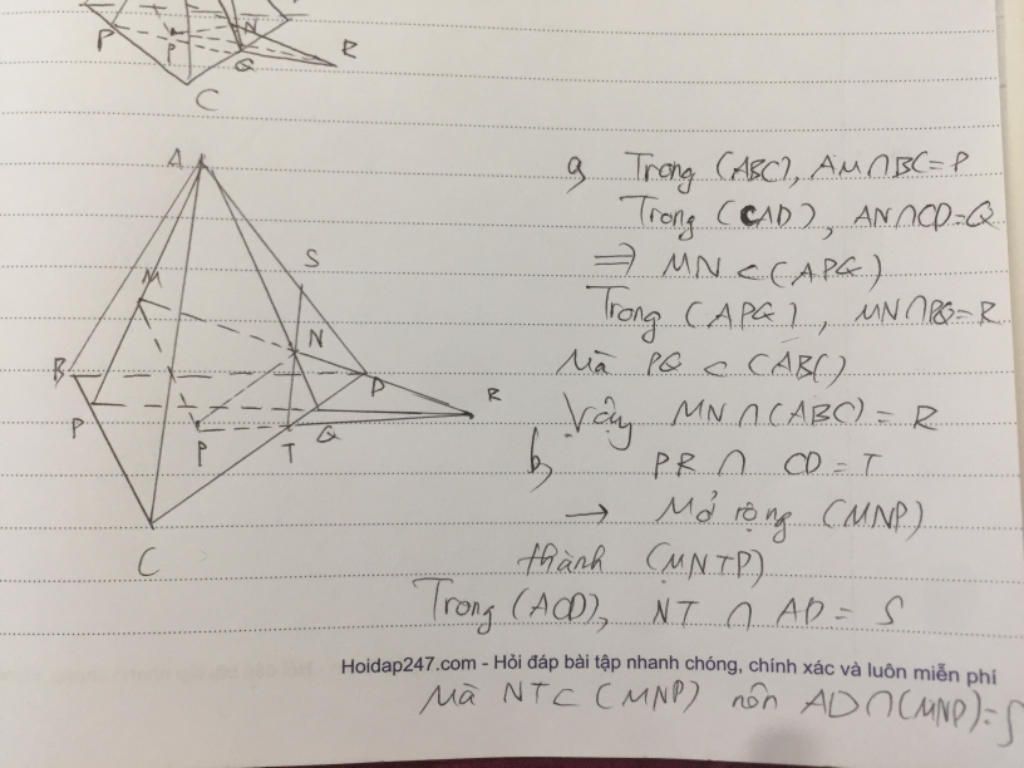 P
P
N
Q
R
C
A
S
M
N
B
D
R
P
P
T
Q
C
a, Trong (ABC), AM ∩ BC = P
Trong (CAD), AN ∩ CD = Q
⇒ MN ⊂ (APQ)
Trong (APQ), MN ∩ PQ = R
Mà PQ ⊂ (ABC)
Vậy MN ∩ (ABC) = R
b, PR ∩ CD = T
→ Mở rộng (MNP)
thành (MNTP)
Trong (ACD), NT ∩ AD = S
Hoidap247.com - Hỏi đáp bài tập nhanh chóng, chính xác và luôn miễn phí
Mà NT ⊂ (MNP) nên AD ∩ (MNP) = S